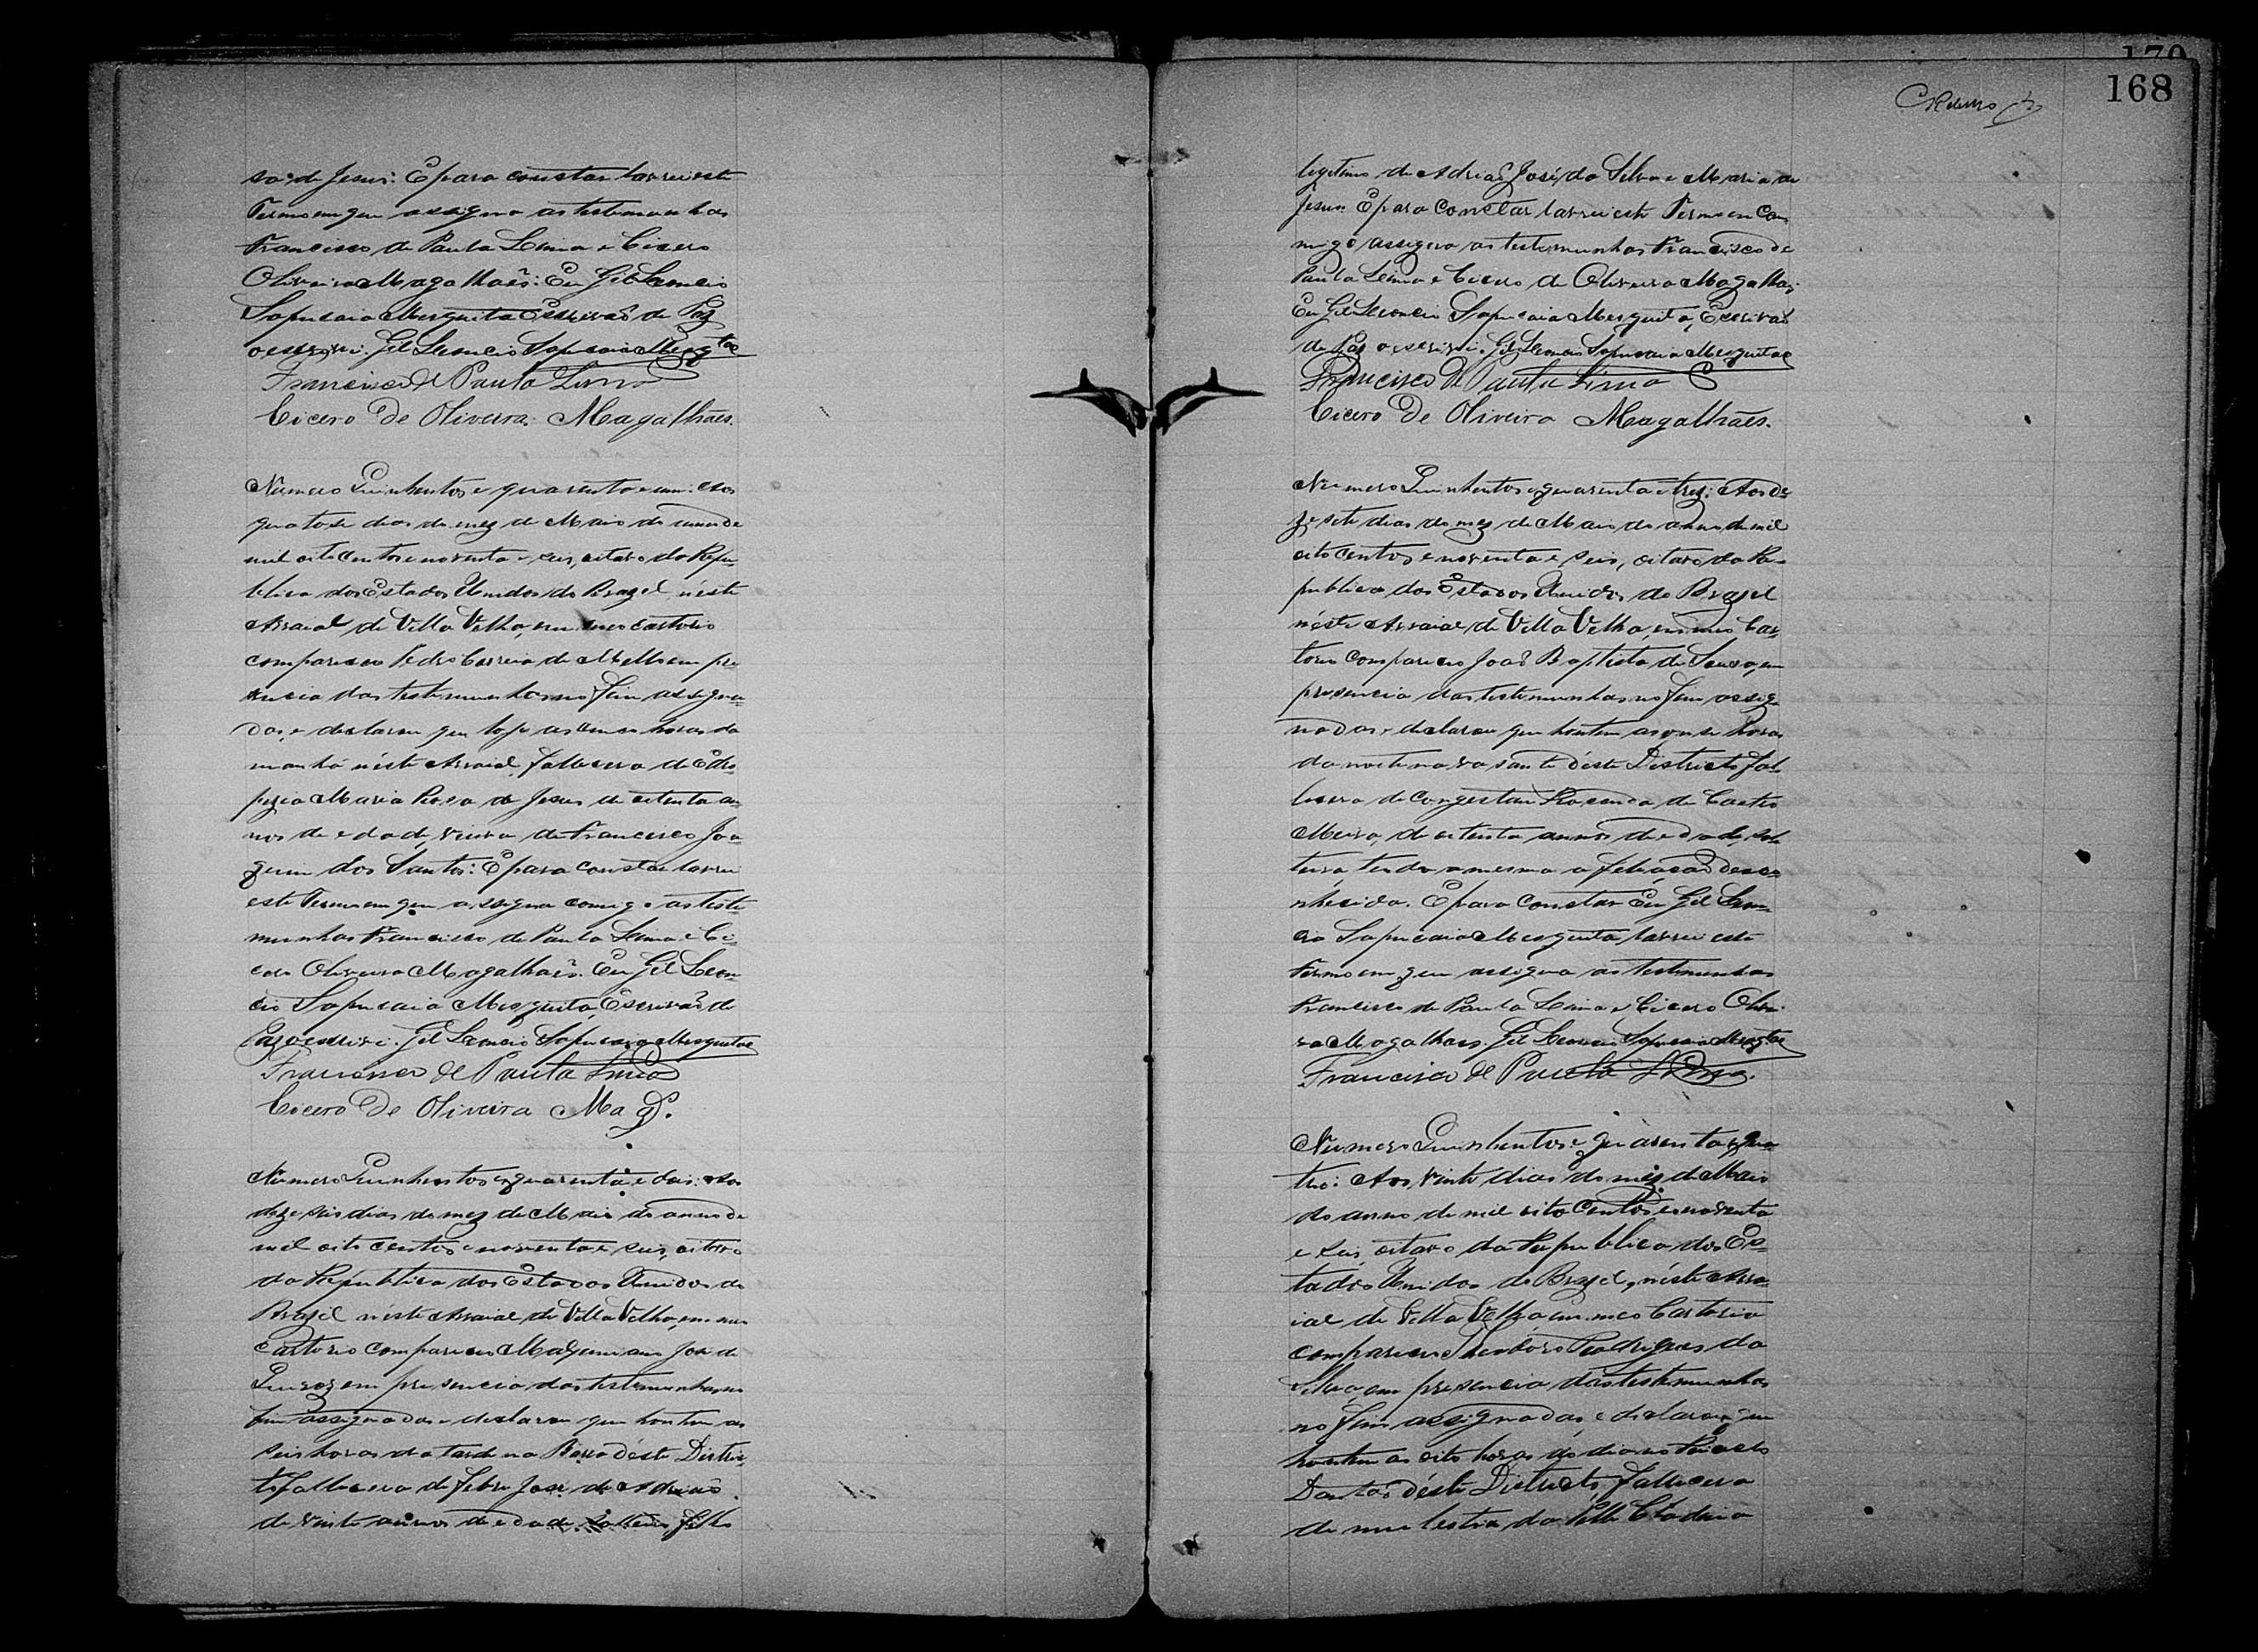 sa de Jesus: E para constar lavrei este
Termo em que assigna as testemunhas
Francisco de Paula Lima e Cicero
Oliveira Magalhaês: Eu Gil Leoncio
Sapucaia Mesquita Escrivaõ de Paz
o escrevi. Gil Leoncio Sapucaia Mesqta
Francisco de Paula Lima
Cicero de Oliveira Magalhães.
Numero Quinhentos e quarenta e um: Aos
quatorze dias do mez de Maio do anno de
mil oito centos e noventa e seis, oitavo da Repu-
blica dos Estados Unidos do Brazil néste
Arraial de Villa Velha, em meo cartorio
compareceo Pedro Correia de Mello em pre
sencia das testemunhas no fim assigna-
das, e declarou que hoje as horas da
manhã néste Arraial, fallecera de Edro-
pezia Maria Rosa de Jesus de oitenta an-
nos de edade, viuva de Francisco Joa
quim dos Santos: E para constar lavrei
este Termo em que assigna comigo as teste-
munhas Francisco de Paula Lima e Ci-
cero Oliveira Magalhaês. Eu Gil Leon-
cio Sapucaia Mesquita, Escrivaõ de
Paz o escrevi. Gil Leoncio Sapucaia Mesquita
Francisco de Paula Lima
Cicero de Oliveira Mag.
Numero Quinhentos e quarenta e dois: Aos
dezeseis dias do mez de Maio do anno de
mil oito centos e noventa e seis, oitavo
da Republica dos Estados Unidos do
Brazil néste Arraial de Villa Velha, em meu
Cartorio compareceo José de
Queroz em presencia das testemunhas no
fim assignadas e declarou que hontem as
seis horas da tarde na Barra déste Distric-
to fallecera de febre José de Adriaõ
de vinte annos de edade, solteiro filho
168
legitimo de Adriaõ José da Silva e Maria de
Jesus E para constar lavrei este Termo em Com
migo assigna as testemunhas Francisco de
Paula Lima e Cicero de Oliveira Magalhaẽs
Eu Gil Leoncio Sapucaia Mesquita, Escrivaõ
de Paz o escrevi. Gil Leoncio Sapucaia Mesquita
Francisco de Paula Lima
Cicero de Oliveira Magalhães.
Numero Quinhentos e quarenta e trez: Aos de-
zesete dias do mez de Maio do anno de mil
oito centos e noventa e seis, oitavo da Re-
publica dos Estados Unidos do Brazil
néste Arraial de Villa Velha, em meo Car-
torio compareceo Joaõ Baptista de Souza, em
presencia das testemunhas no fim assig-
nadas e declarou que hontem as onze horas
da noite na déste Districto fal-
lecera de Congestaõ de Castro
Meira, de oitenta annos de edade, sol-
teira, tendo a mesma a filiaçaõ desco-
nhecida. E para constar Eu Gil Leon-
cio Sapucaia Mesquita lavrei este
Termo em que assigna as testemunhas
Francisco de Paula Lima e Cicero Olivei-
ra Magalhaes. Gil Leoncio Sapucaia Mesqta
Francisco de Paula Lima.
Numero Quinhentos e quarenta e qua
tro: Aos vinte dias do mez de Maio
do anno de mil oito centos e noventa
e seis, oitavo da Republica dos Es-
tados Unidos do Brazil, néste Arra-
ial de Villa Velha em meo Cartorio
compareceu Theodoro Rodrigues da
Silva, em presencia das testemunhas
no fim assignadas, e declarou que
hontem as oito horas do dia no Riacho
Dantas déste Districto fallecera
de molestia da Pelle